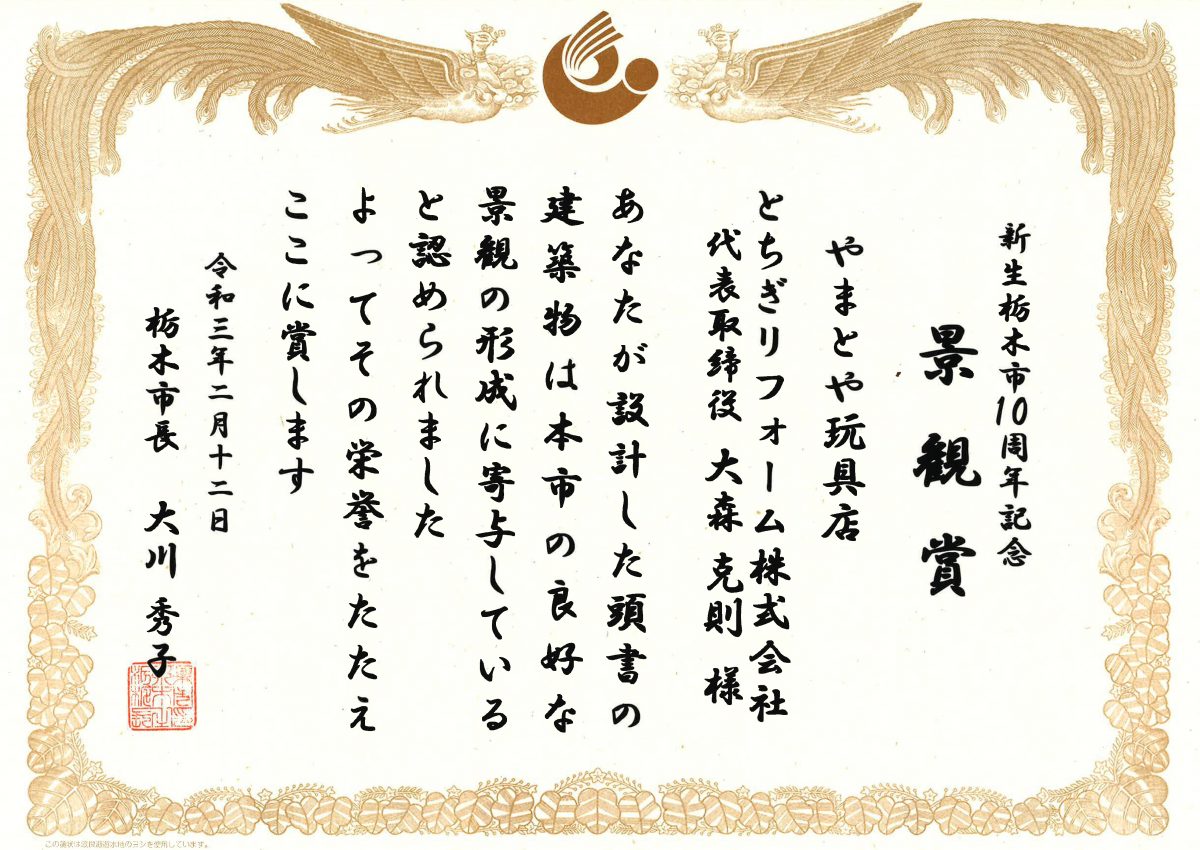 新生栃木市10周年記念
景観賞
やまとや玩具店
とちぎリフォーム株式会社
代表取締役 大森 克則 様
あなたが設計した頭書の
建築物は本市の良好な
景観の形成に寄与している
と認められました
よってその栄誉をたたえ
ここに賞します
令和三年二月十二日
栃木市長 大川 秀子
この賞状は渡良瀬遊水地のヨシを使用しています。